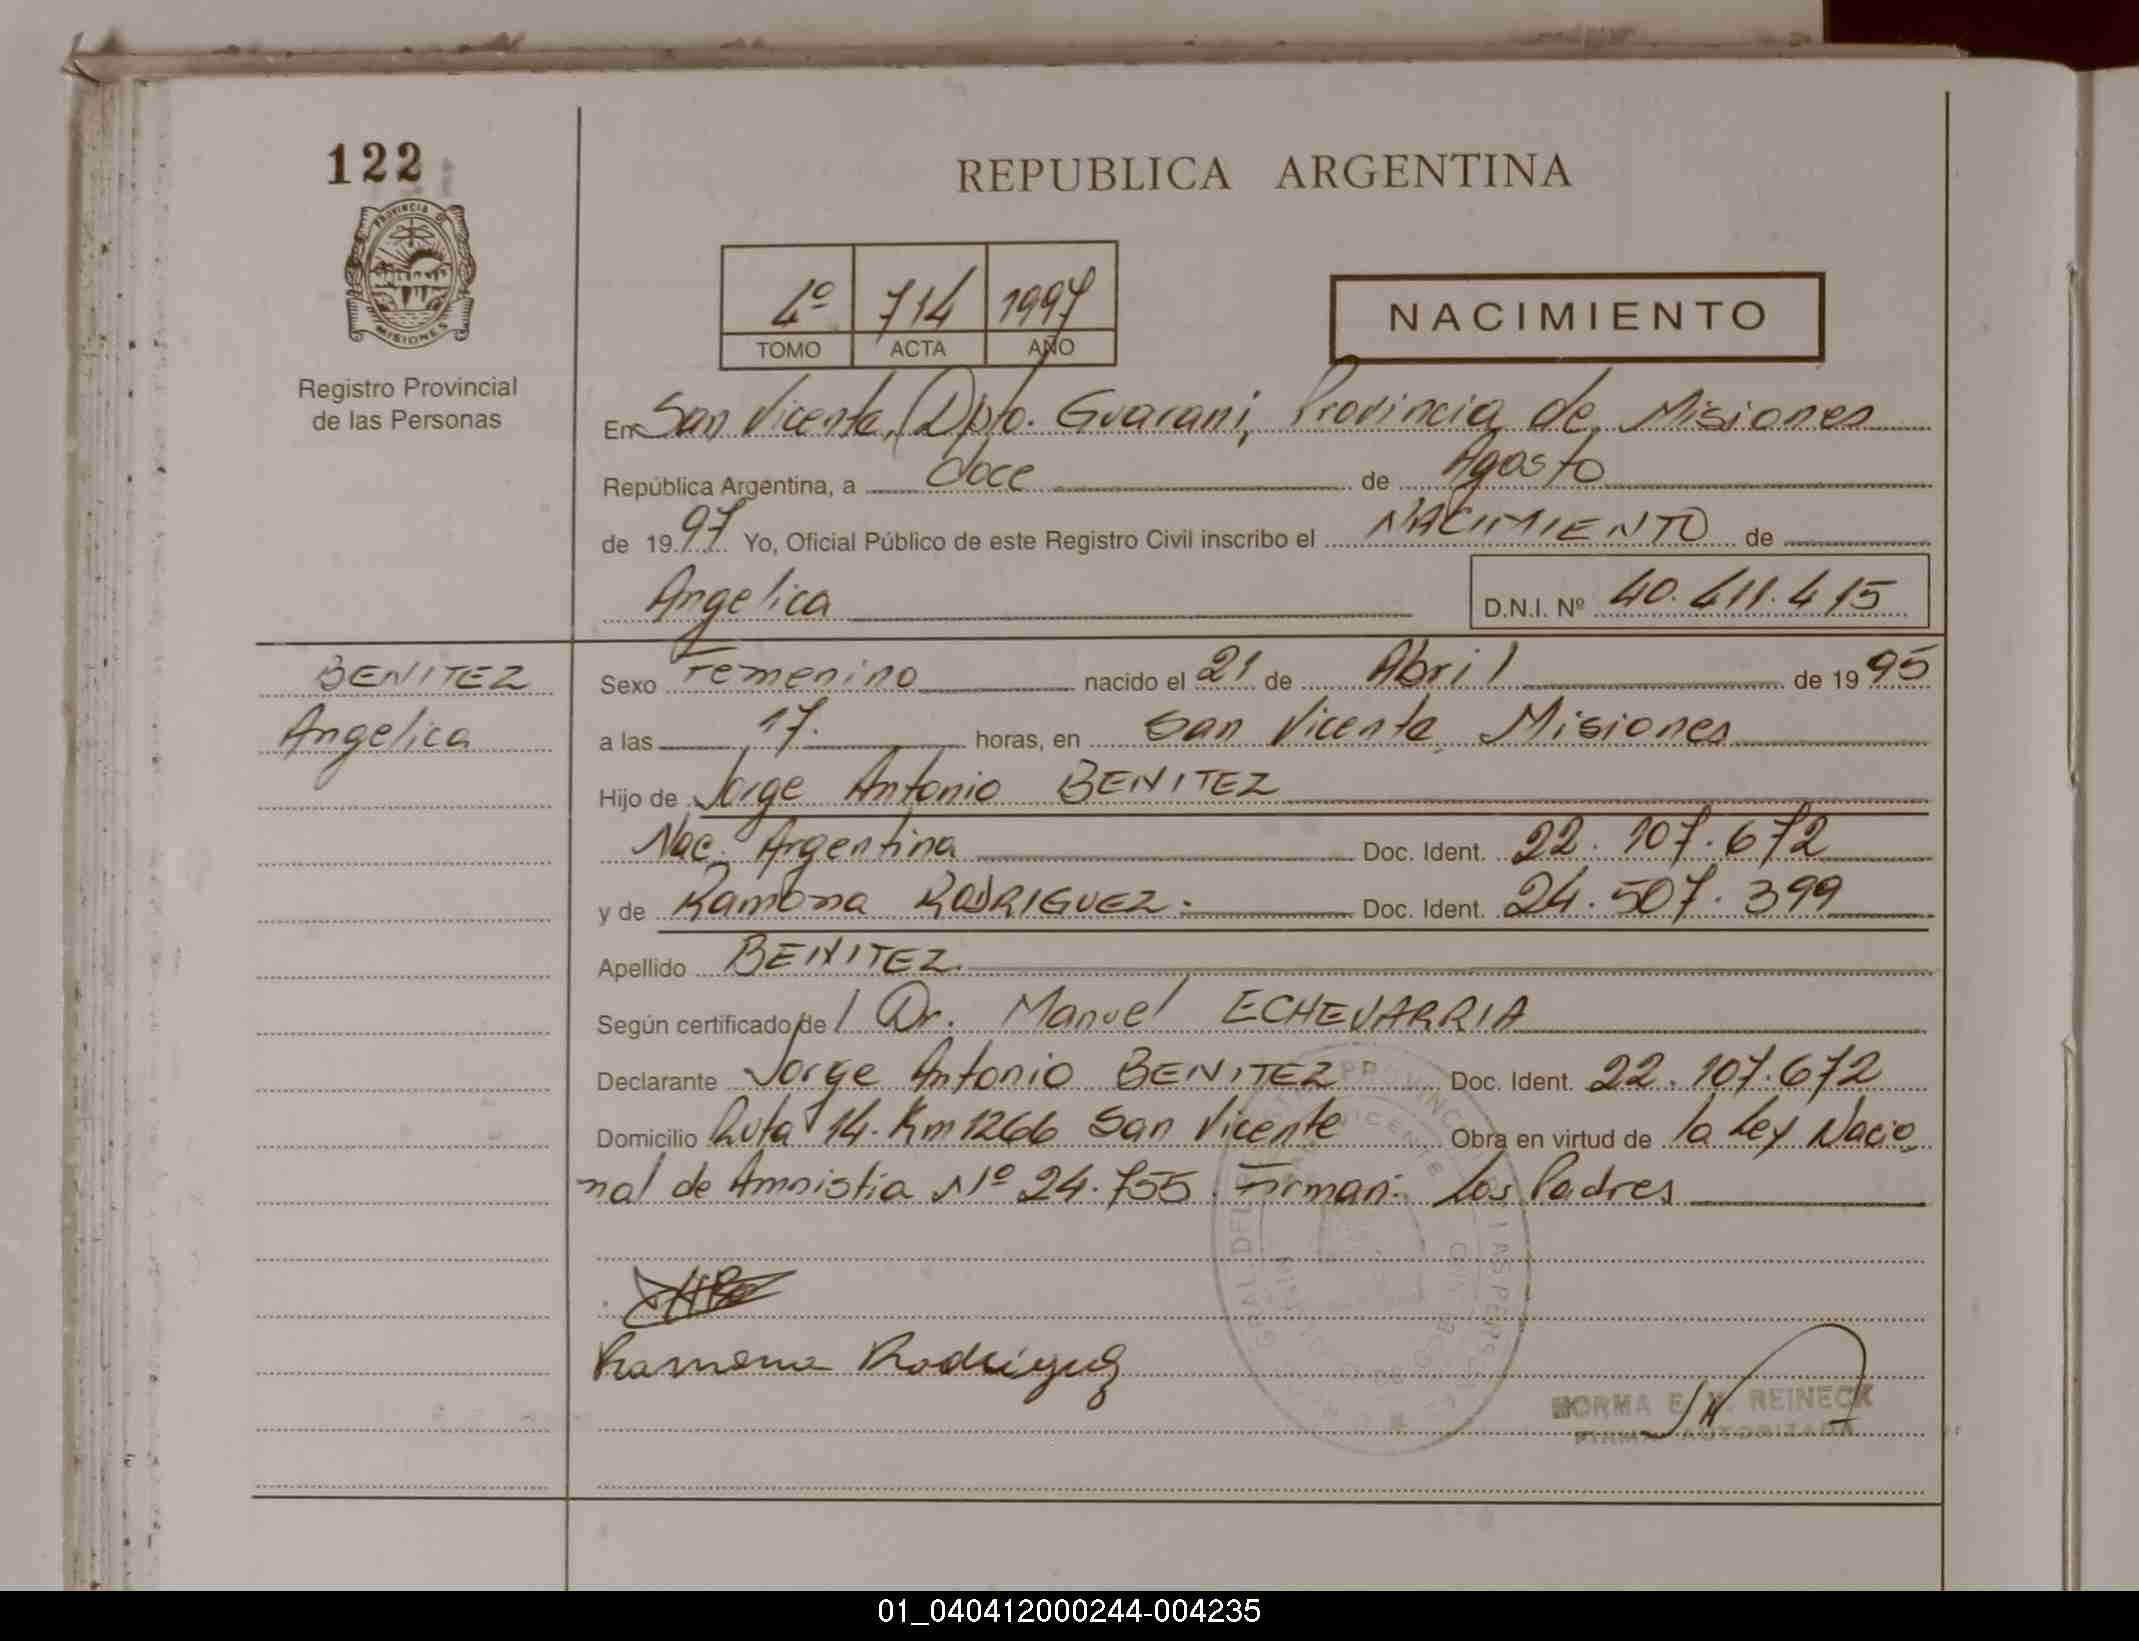 122
REPUBLICA ARGENTINA
PROVINCIA DE
MISIONES
Registro Provincial
de las Personas
4º 714 1997
TOMO ACTA AÑO
NACIMIENTO
En San Vicente, Dpto. Guarani, Provincia de Misiones
República Argentina, a doce de Agosto
de 1997 Yo, Oficial Público de este Registro Civil inscribo el NACIMIENTO de
Angelica D.N.I. Nº 40.411.415
BENITEZ
Angelica
Sexo Femenino nacido el 21 de Abril de 1995
a las 17. horas, en San Vicente, Misiones
Hijo de Jorge Antonio BENITEZ
Nac. Argentina Doc. Ident. 22.107.672
y de Ramona RODRIGUEZ. Doc. Ident. 24.507.399
Apellido BENITEZ.
Según certificado de Dr. Manuel ECHEVARRIA
Declarante Jorge Antonio BENITEZ Doc. Ident. 22.107.672
Domicilio Ruta 14. Km 1266 San Vicente Obra en virtud de la Ley Nacio
nal de Amnistia Nº 24.755. Firman: los Padres
Ramona Rodriguez
NORMA E. REINECK
FIRMA AUTORIZADA
01_040412000244-004235